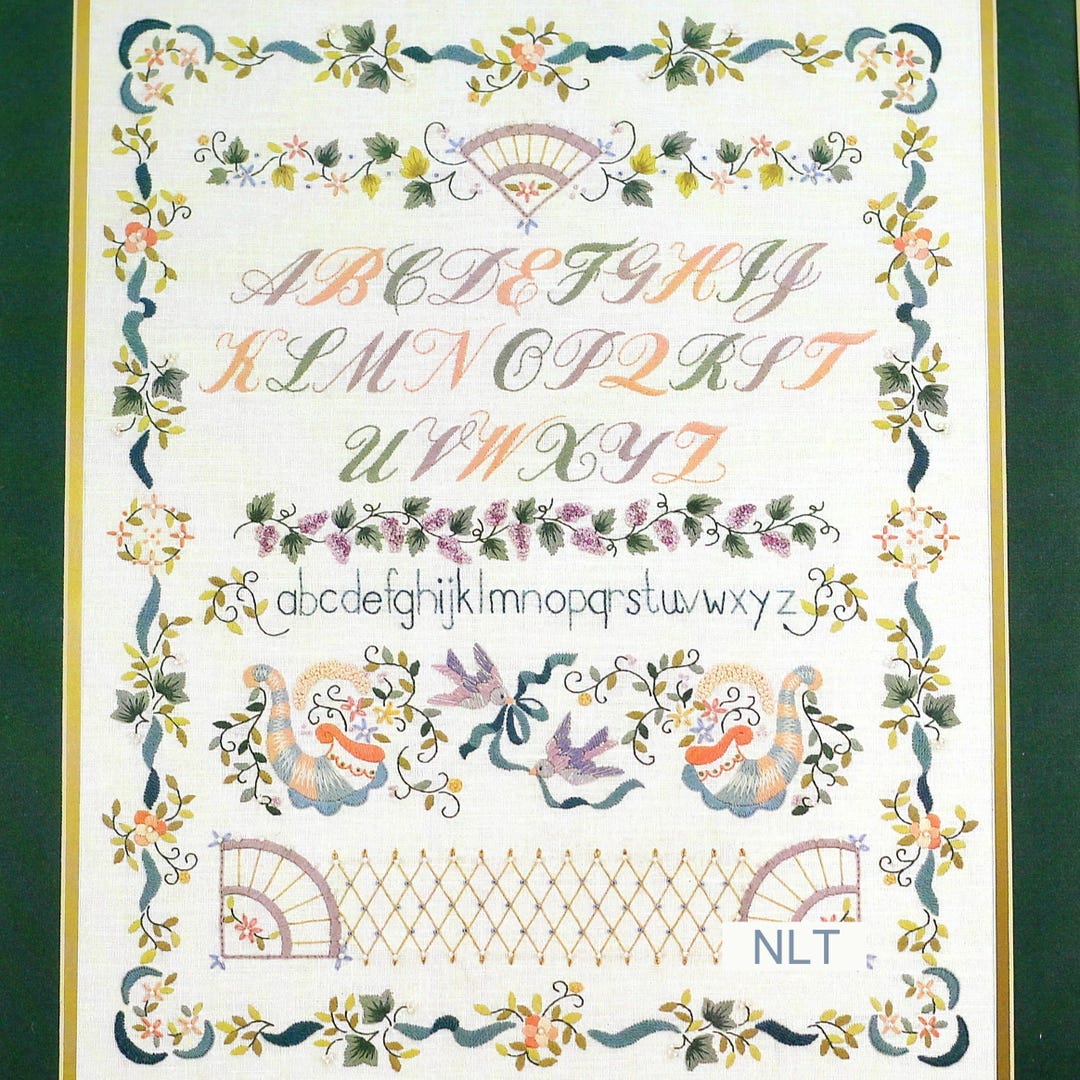 ABCDEFGHIJ
KLMNOPQRST
UVWXYZ
abcdefghijklmnopqrstuvwxyz
NLT